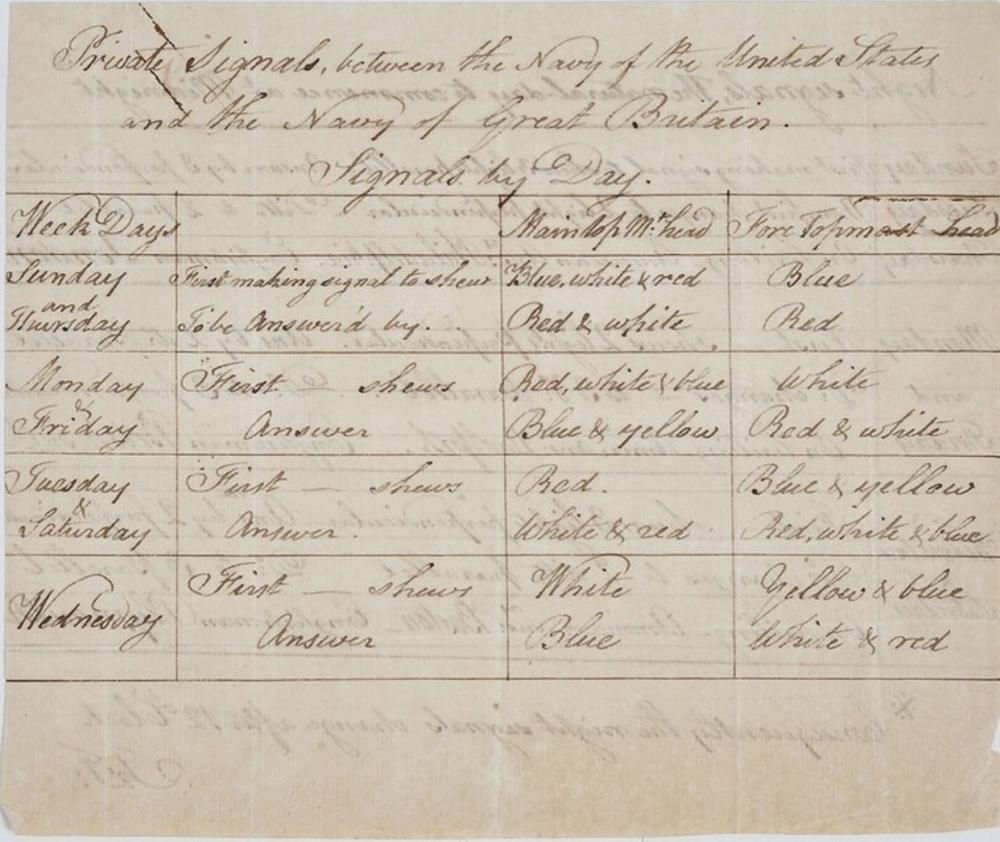 Private Signals, between the Navy of the United States
and the Navy of Great Britain.
Signals by Day.
Week Days Main top Mt. head Fore Topmast head
Sunday First making signal to shew Blue, white & red Blue
and
Thursday To be Answer'd by. Red & white Red
Monday First shews Red, white & blue White
&
Friday Answer Blue & yellow Red & white
Tuesday First — shews Red. Blue & yellow
&
Saturday Answer. White & red Red, white & blue
First — shews White Yellow & blue
Wednesday
Answer Blue White & red